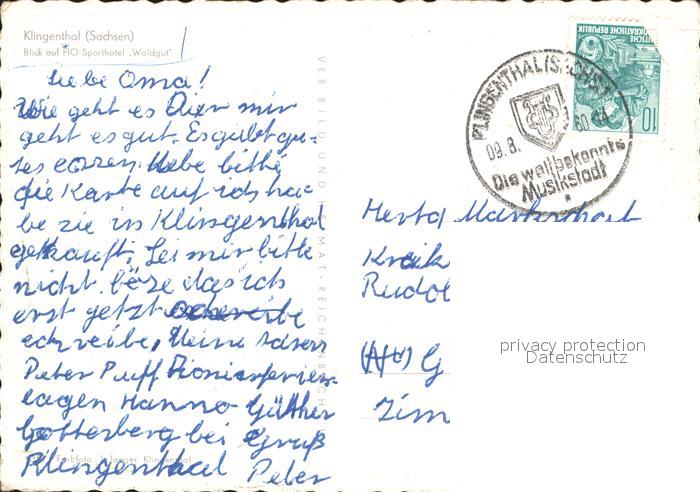 Klingenthal (Sachsen)
Blick auf HO-Sporthotel „Waldgut"
Liebe Oma!
Wie geht es Dier mir
geht es gut. Es gibt gu-
tes eszen. Hebe bitte
die Karte auf ich ha-
be zie in Klingenthal
gekauft. Sei mir bitte
nicht böze das ich
erst getzt
schreibe. Meine Adress
Peter Puff Pionierferien-
lagen Hanno Günther
Gotterberg bei Gruß
Klingenthal Peter
VEB BILD UND HEIMAT REICHENBACH
KLINGENTHAL (SACHS)
09.8. 60
Die weltbekannte
Musikstadt
DEUTSCHE
DEMOKRATISCHE REPUBLIK
10
Herta
Kreik
Rudol
G
Zim
privacy protection
Datenschutz